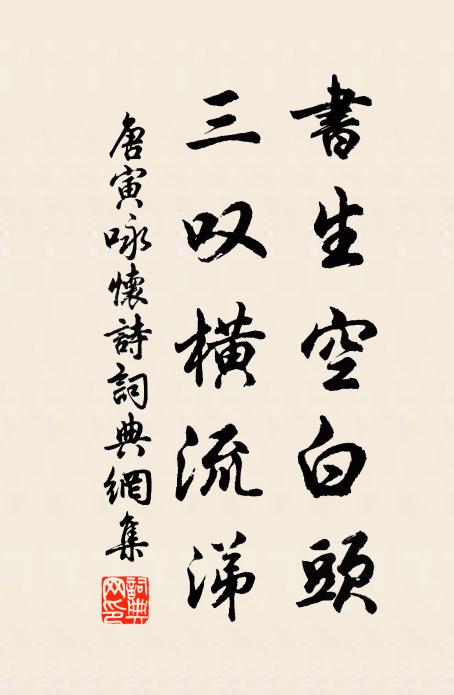 書生空白頭
三叹橫流涕
唐寅咏懷詩詞典網集
詞典网印